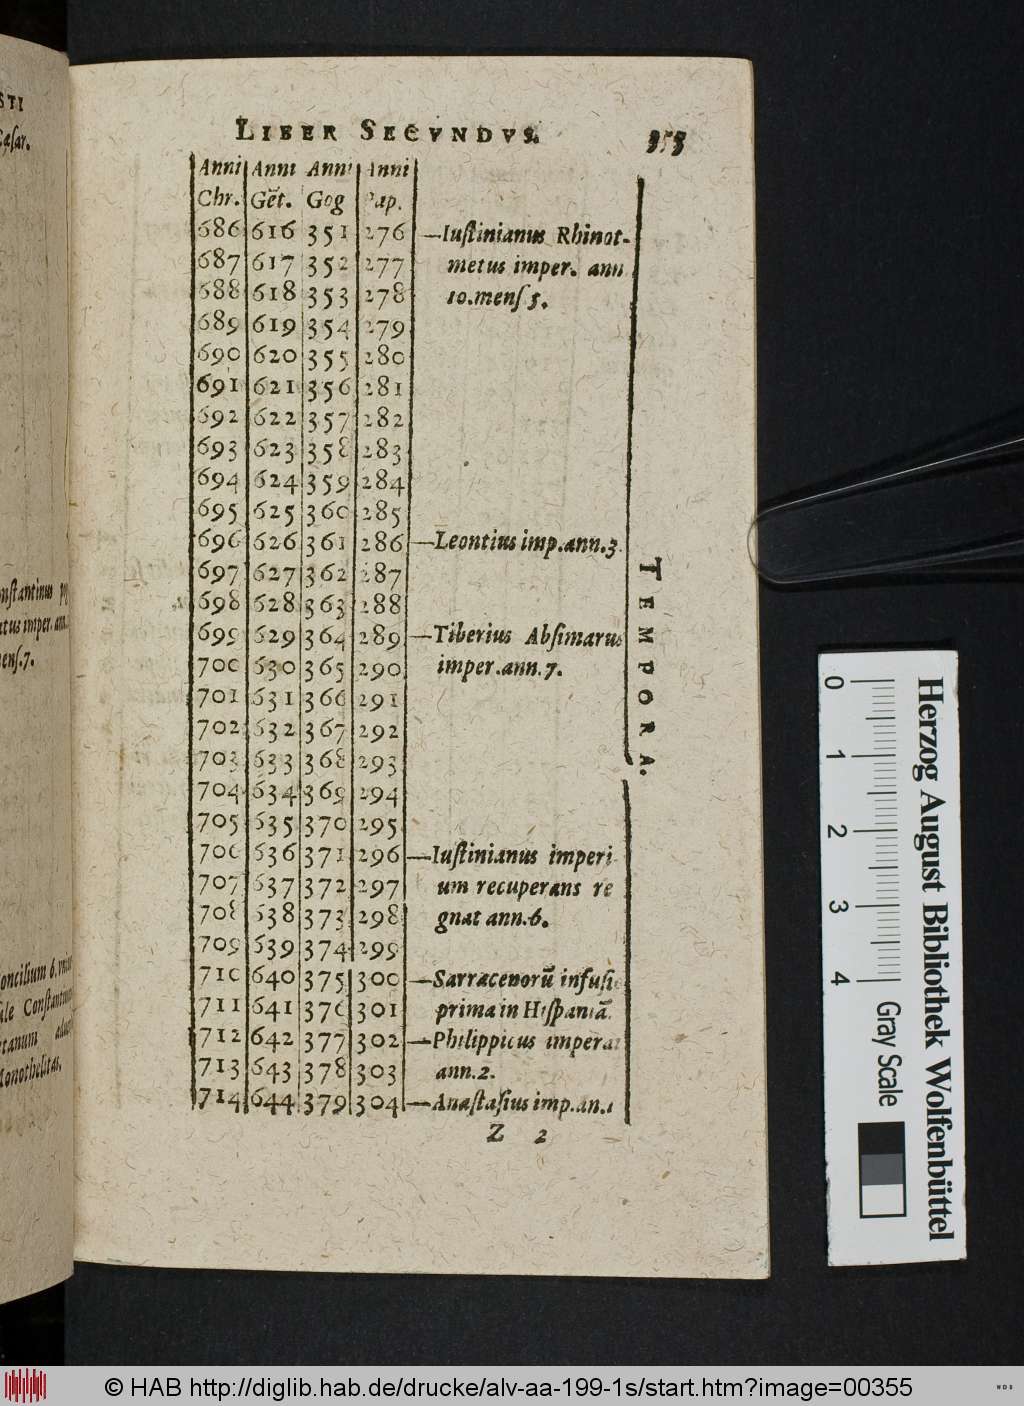 LIBER SECVNDVS.
Anni Anni Anni Anni
Chr. Gēt. Gog Pap.
686 616 351 276 —Iuſtinianus Rhinot-
687 617 352 277 metus imper. ann
688 618 353 278 10.menſ 5.
689 619 354 279
690 620 355 280
691 621 356 281
692 622 357 282
693 623 358 283
694 624 359 284
695 625 360 285
696 626 361 286 —Leontius imp.ann.3.
697 627 362 287
698 628 363 288
699 629 364 289 —Tiberius Abſimarus
700 630 365 290 imper.ann.7.
701 631 366 291
702 632 367 292
703 633 368 293
704 634 369 294
705 635 370 295
706 636 371 296 —Iuſtinianus imperi
707 637 372 297 um recuperans re
708 638 373 298 gnat ann.6.
709 639 374 299
710 640 375 300 —Sarracenorū infuſio
711 641 376 301 prima in Hiſpaniā.
712 642 377 302 —Philippicus imperat
713 643 378 303 ann.2.
714 644 379 304 —Anaſtaſius imp.an.1
Z 2
TEMPORA.
STI
Cæſar.
imper. an.
menſ.7.
Concilium 6.
Monothelitas.
0 1 2 3 4
Gray Scale
Herzog August Bibliothek Wolfenbüttel
© HAB http://diglib.hab.de/drucke/alv-aa-199-1s/start.htm?image=00355